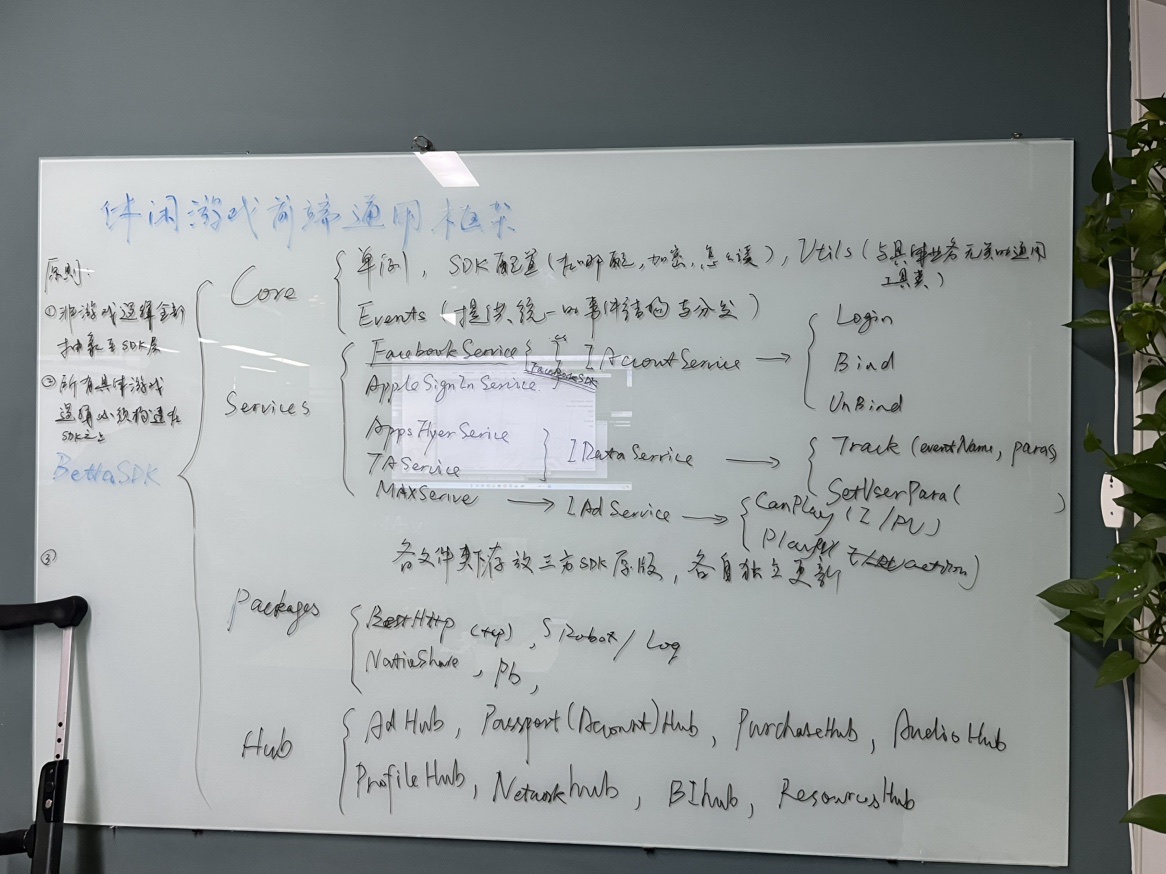 休闲游戏前端通用框架
原则:
①非游戏逻辑全部
抽象至SDK层
②所有具体游戏
逻辑必须构建在
SDK之上
BettaSDK
③
Core
单例, SDK配置(在哪配,加密,怎么读), Utils(与具体业务无关的通用
工具类)
Events(提供统一的事件结构与分发)
Services
FacebookService
FacebookSDK
AppleSignInService
IAccountService →
Login
Bind
UnBind
AppsFlyerService
TAService
IDataService →
Track(eventName, paras
SetUserPara( )
MAXSerive → IAdService →
CanPlay(I/PU)
action)
各文件夹下存放三方SDK原版, 各自独立更新
Packages
BestHttp (tcp), SRobot/Log
NativeShare, Pb,
Hub
AdHub, Passport(Account)Hub, PurchaseHub, AudioHub
ProfileHub, Networkhub, BIhub, ResourcesHub